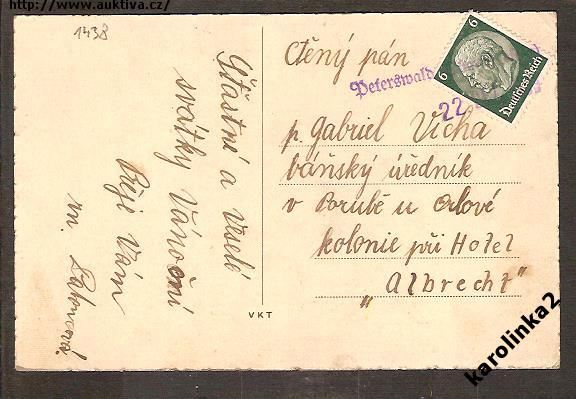 http://www.auktiva.cz/
1438
Šťastné a Veselé
svátky Vánoční
Přeje Vám
m.
Ctěný pán
Peterswald
22
6
6
Deutsches Reich
p. Gabriel Vicha
báňský úředník
v Porubě u Orlové
kolonie při Hotel
„Albrecht"
VKT
karolinka2